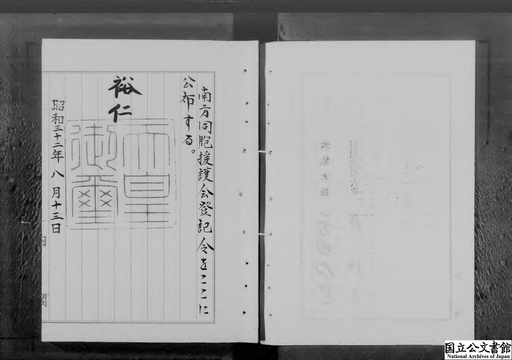 南方同胞援護会登記令をここに
公布する。
裕仁
天皇
御璽
昭和三十二年八月十三日
内閣
国立公文書館
National Archives of Japan